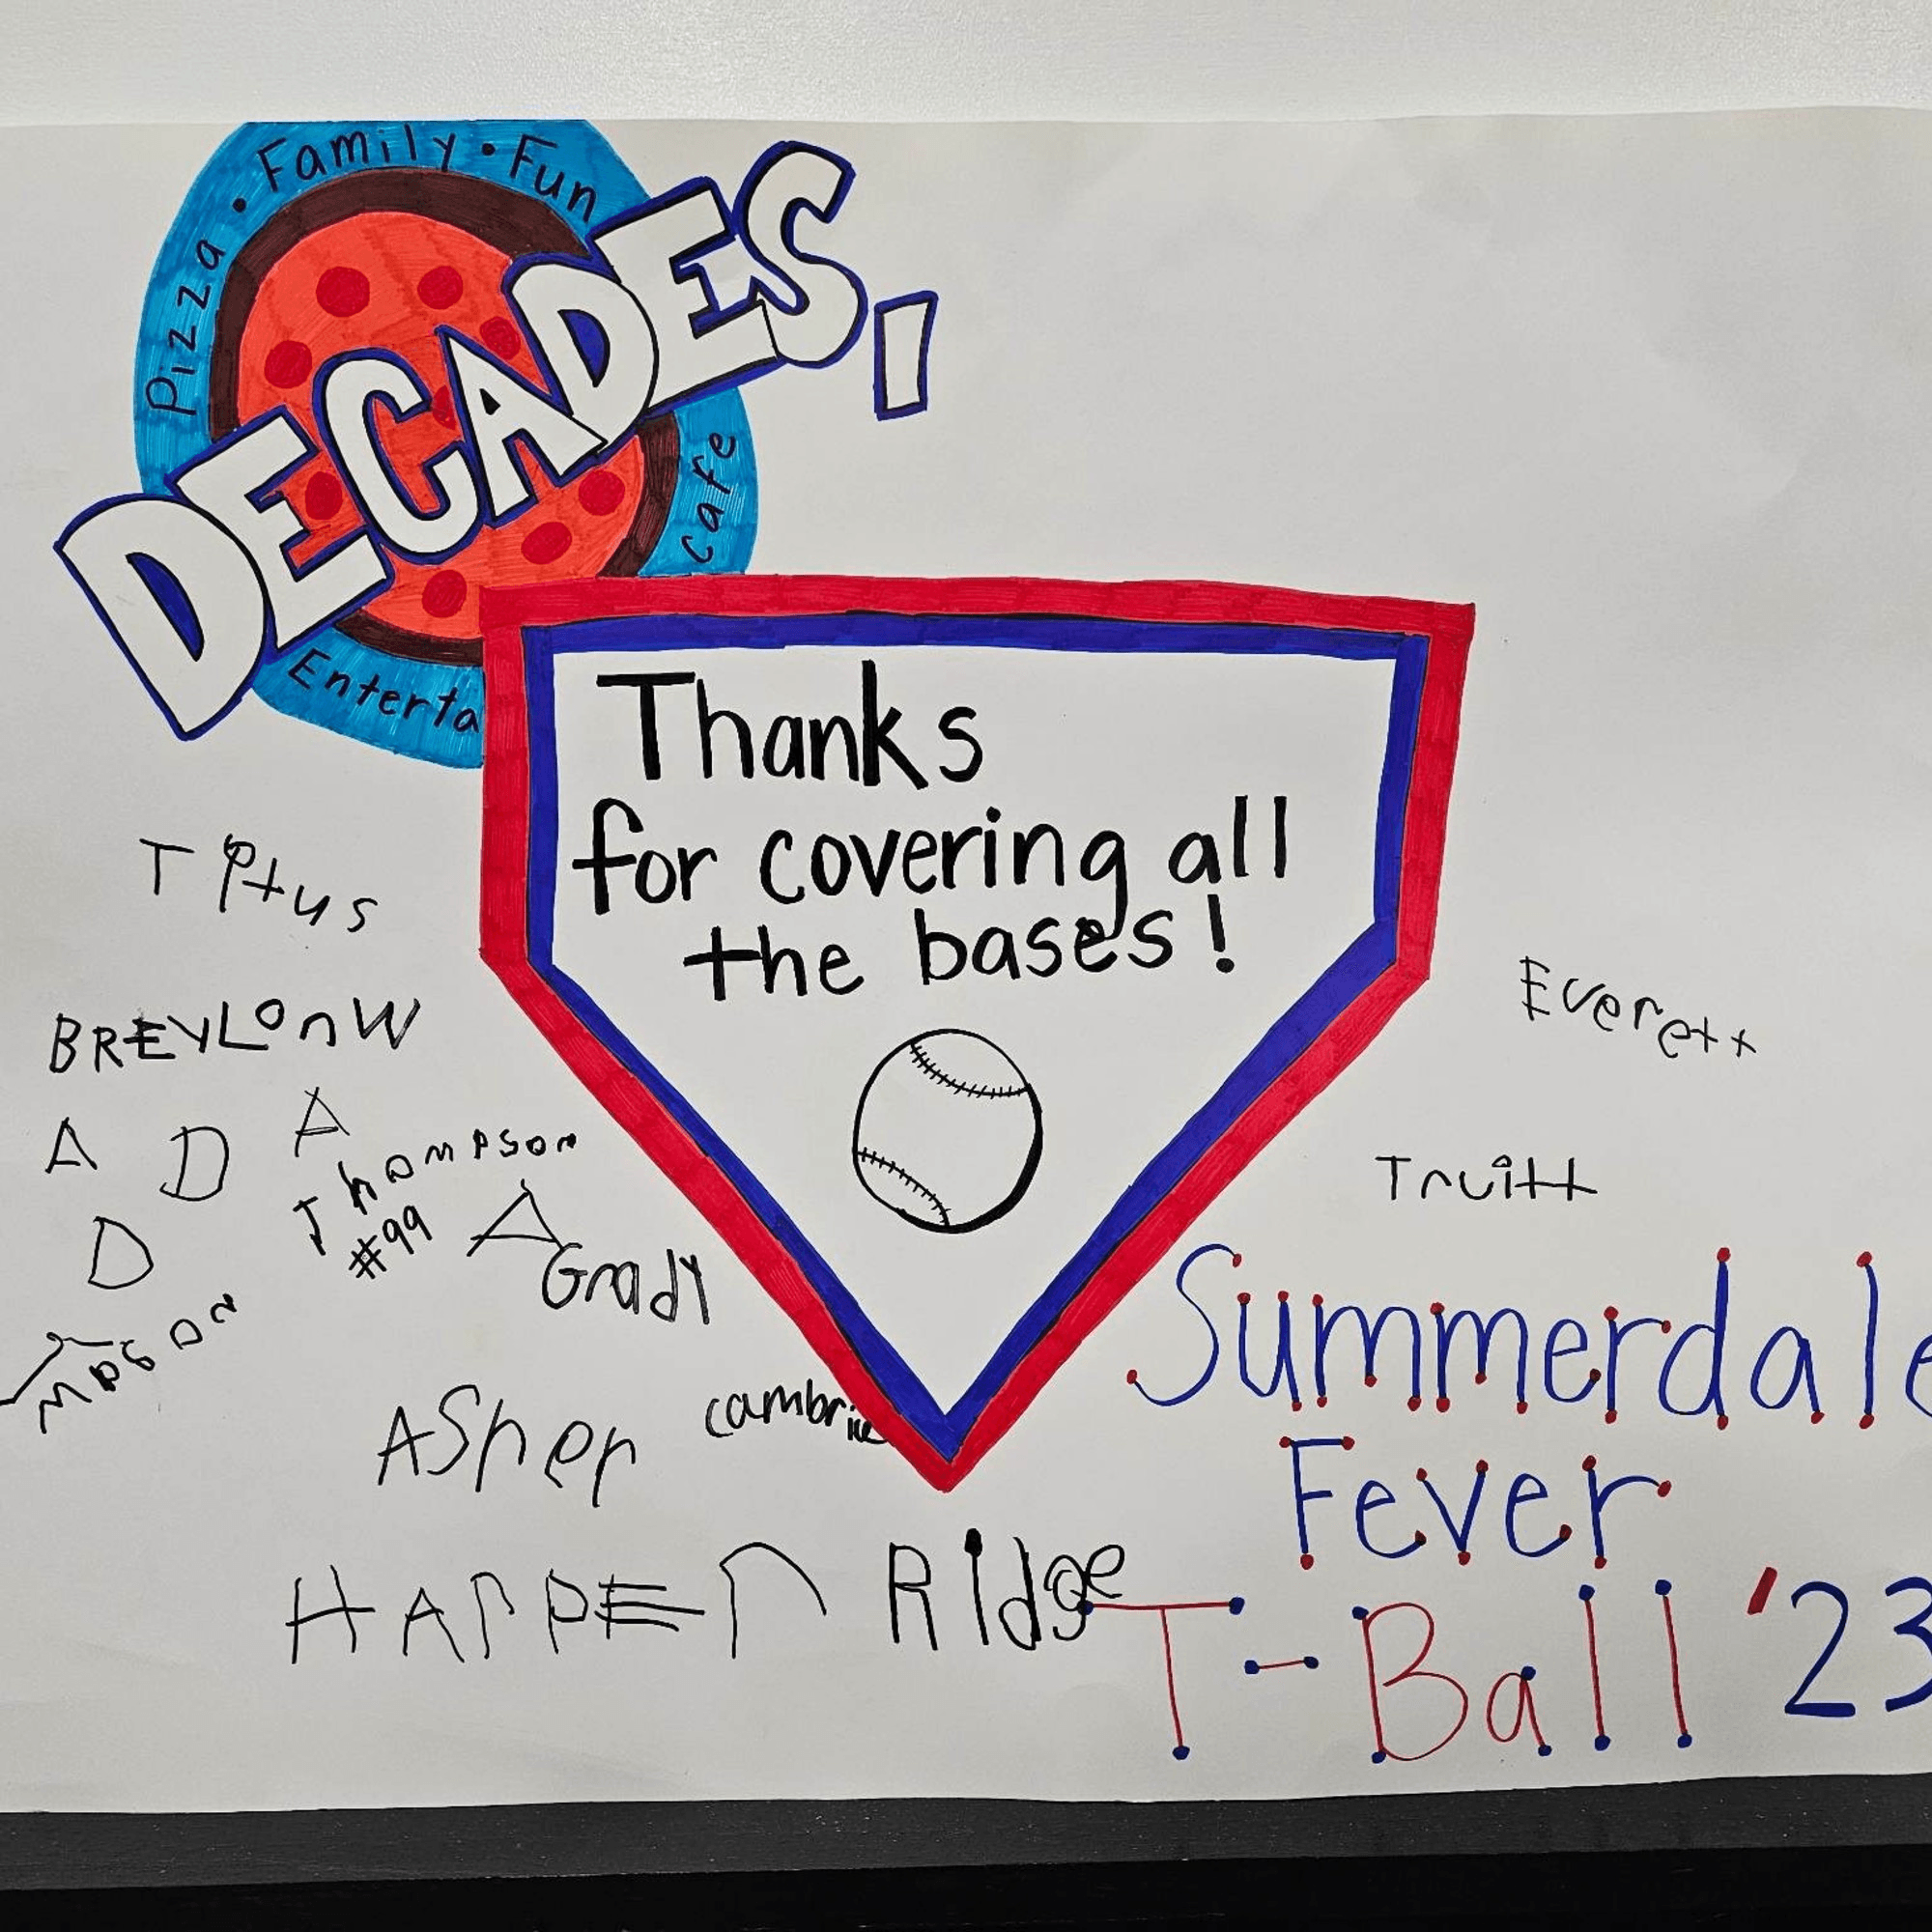 Pizza • Family • Fun
DECADES,
Cafe
Enterta
Thanks
for covering all
the bases!
Titus
BREYLOnW
A D A
D
Thompson
#99
A
Grady
Mason
Everett
Truitt
Asher
cambrie
HArPEr
Ridge
Summerdale
Fever
T-Ball '23